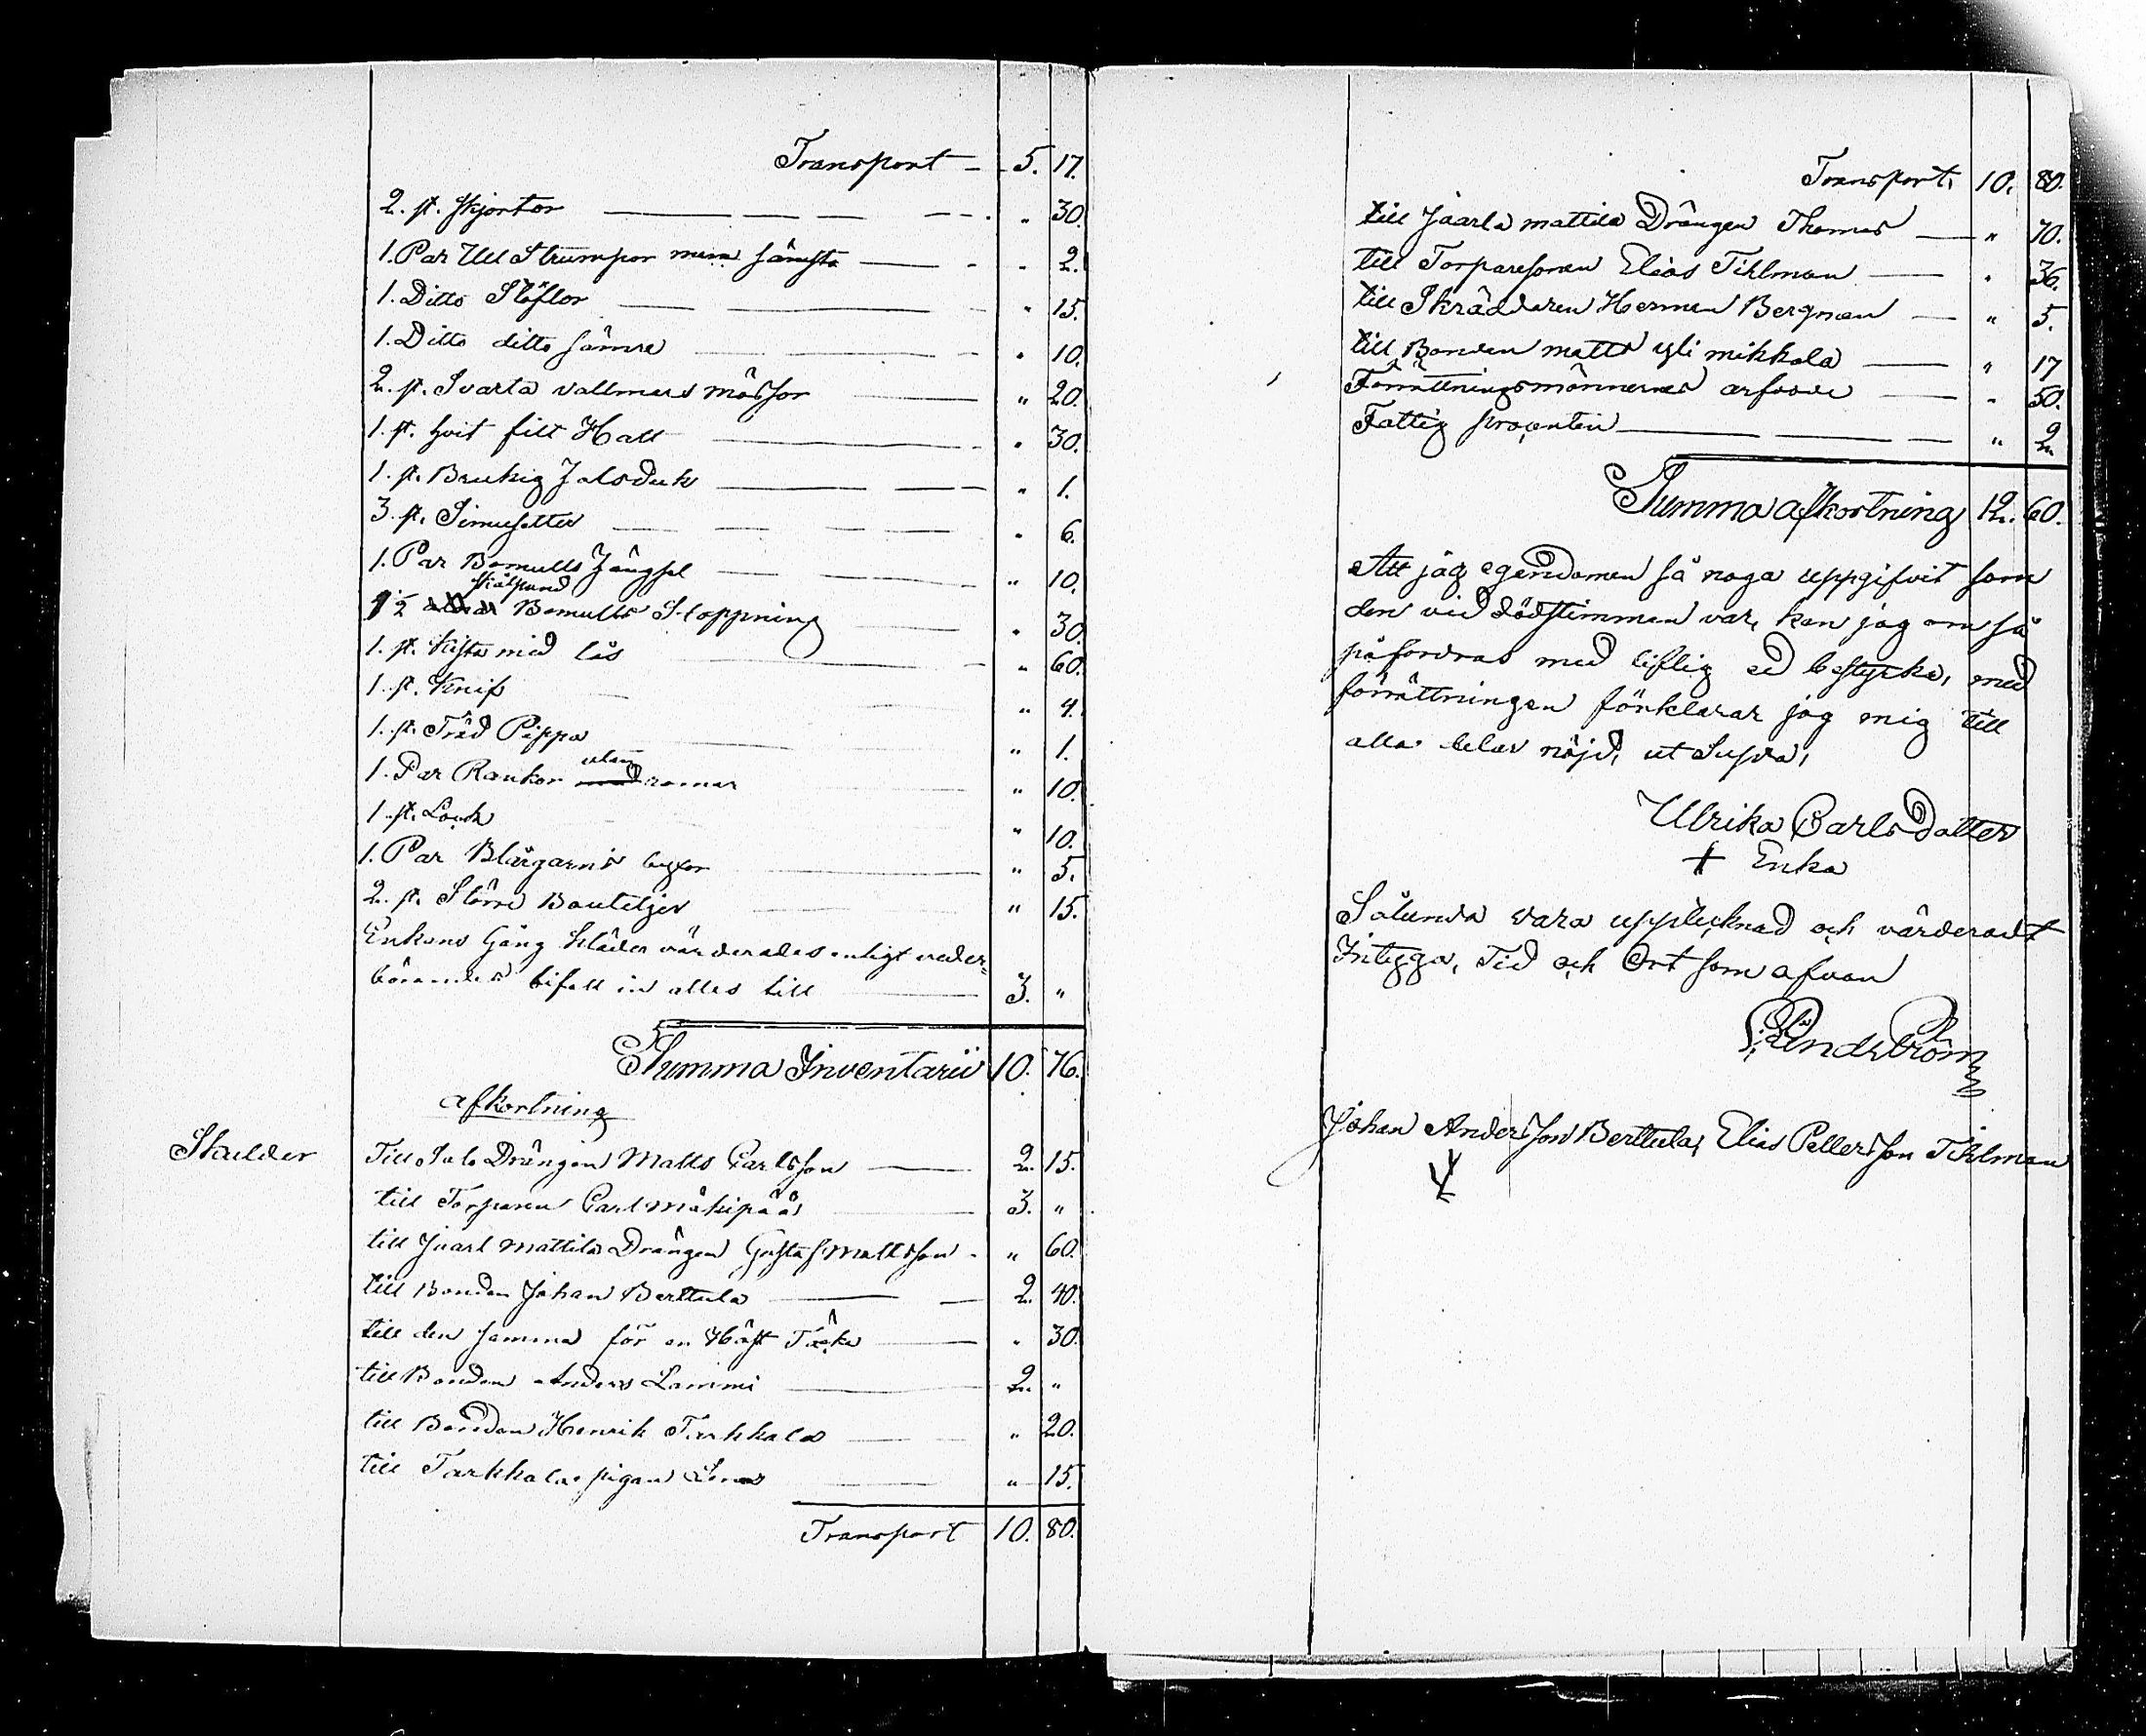 Transport - 5. 17.
2. st. Skjortor " 30.
1. Par Ull Strumpor - 2.
1. Ditto Stöflor " 15.
1. Ditto ditto sämre " 10.
2. st. Svarta vallmars mössor " 20.
1. st. hvit filt Hatt " 30.
1. st. Brukig Halsduk " 1.
3. st. " 6.
1. Par Bomulls Tängsel " 10.
skålpund
1 1/2 Bomulls Stoppning " 30.
1. st. Kista med lås " 60.
1. st. Knif " 4.
1. st. Träd Pippa " 1.
utan
1. Par Rankor med ramar " 10.
1. st. " 10.
1. Par Blårgarns byxor " 5.
2. st. Större Bouteljer " 15.
Enkans Gång kläder värderades enligt veder=
börandes bifall in alles till 3. "
Summa Inventarii 10. 76.
afkortning
Skulder Till Salo Drängen Matts Carlsson 2. 15.
till Torparen Carl Mäkipää 3. "
till Juarl Mattila Drängen Gustaf Mattsson - " 60.
till Bonden Johan Berttula 2. 40.
till den samma för en Häst Täcke " 30.
till Bonden Anders Lammi 2. "
till Bonden Henrik Tarkkala " 20.
till Tarkkala pigan Lena " 15.
Transport 10. 80.
Transport, 10. 80.
till Jaarla mattila Drängen Thomas " 70.
till Torparesonen Elias Tihlman " 36.
till Skräddaren Herman Bergman " 5.
till Bonden matts yli mikkola " 17
Förrättningsmännernas arfvode " 50.
Fattig procenten " 2.
Summa afkortning 12. 60.
Att jag egendomen så noga uppgifvit som
den vid dödstimman var, kan jag om så
påfordras med liflig ed bestyrka, med
förrättningen förklarar jag mig till
alla delar nöjd, ut Supra,
Ulrika Carlsdatter
+ Enka
Sålunda vara upptecknad och värderadt
Intyga, Tid och Ort som ofvan
Lindström
Johan Andersson Berttula, Elias Pettersson Tihlman